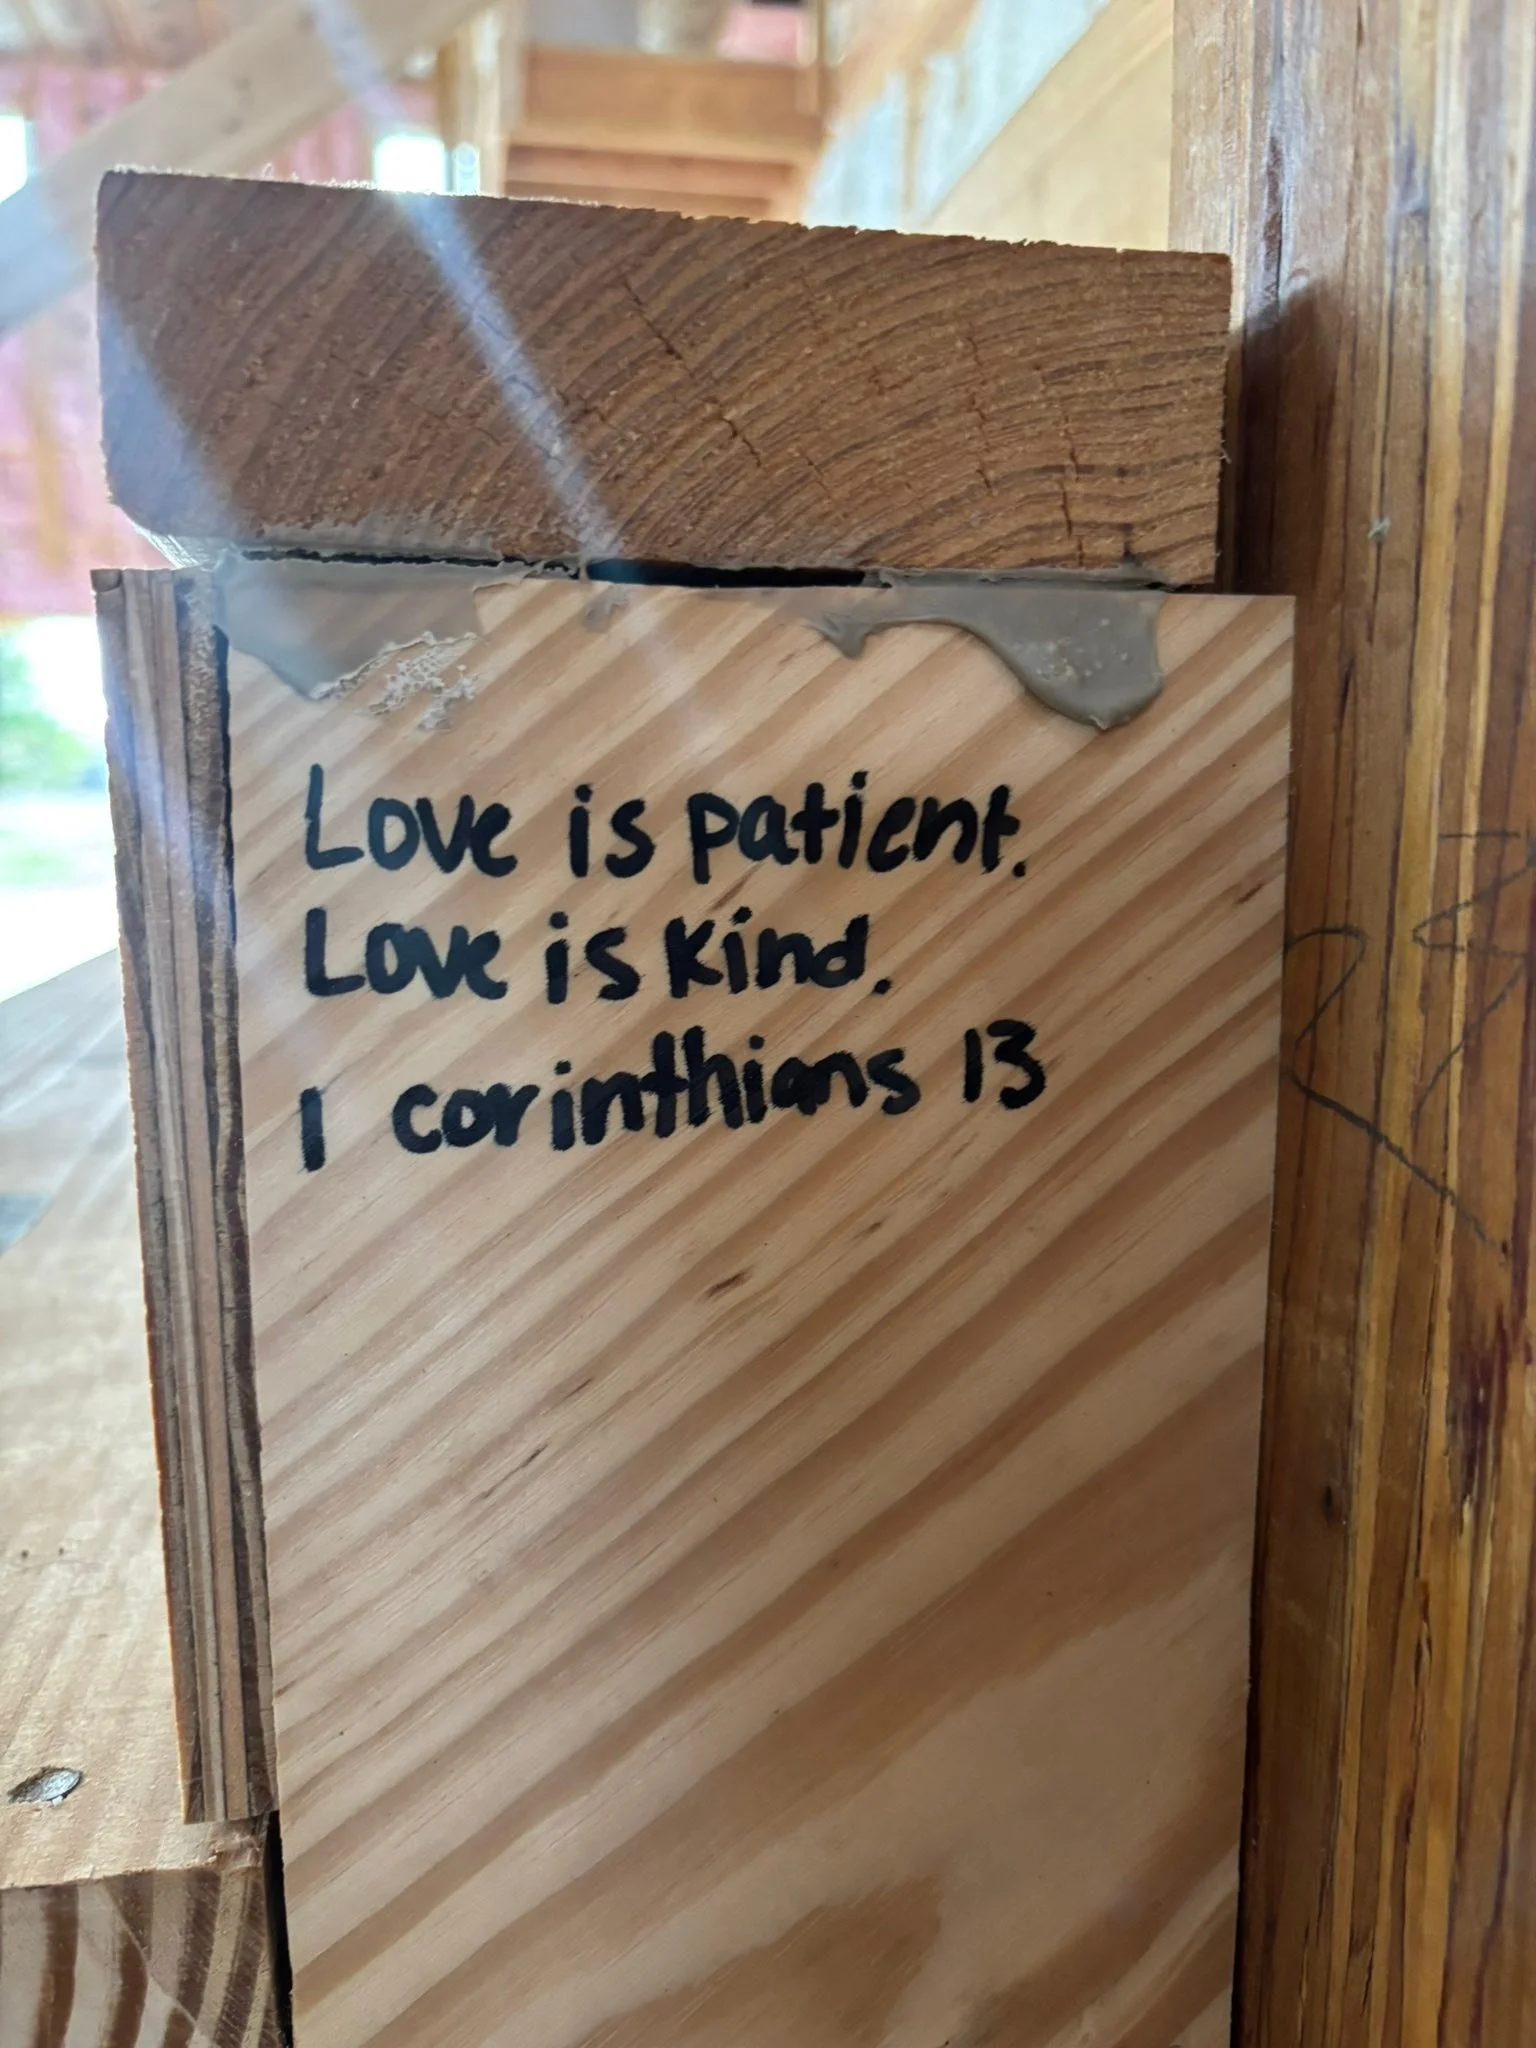 Love is patient.
Love is kind.
1 corinthians 13